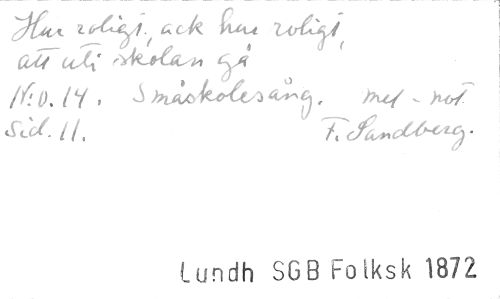 Hur roligt, ack hur roligt,
att uti skolan gå
N:o. 14. Småskolesång. mel-not
Sid. 11. F. Sandberg.
Lundh SGB Folksk 1872